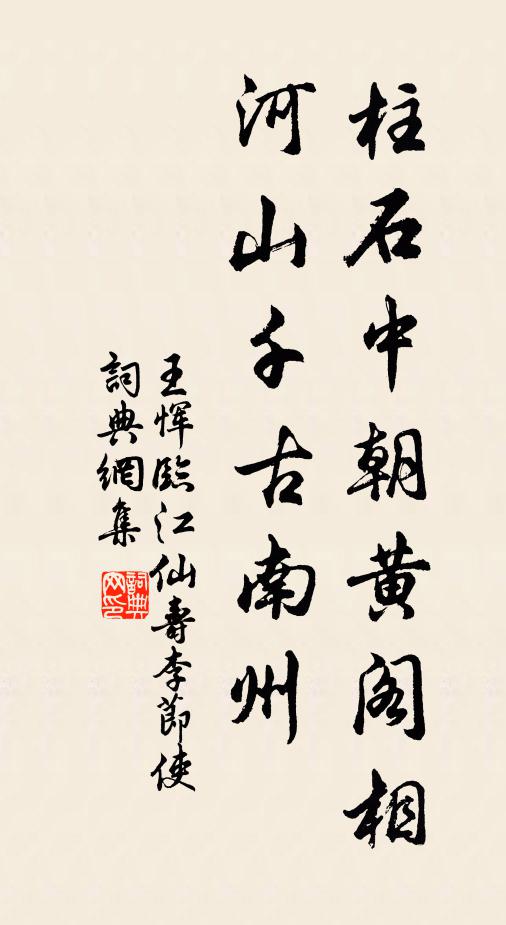 柱石中朝黃阁相
河山千古南州
王恽臨江仙壽李節使
詞典網集
詞典
网印